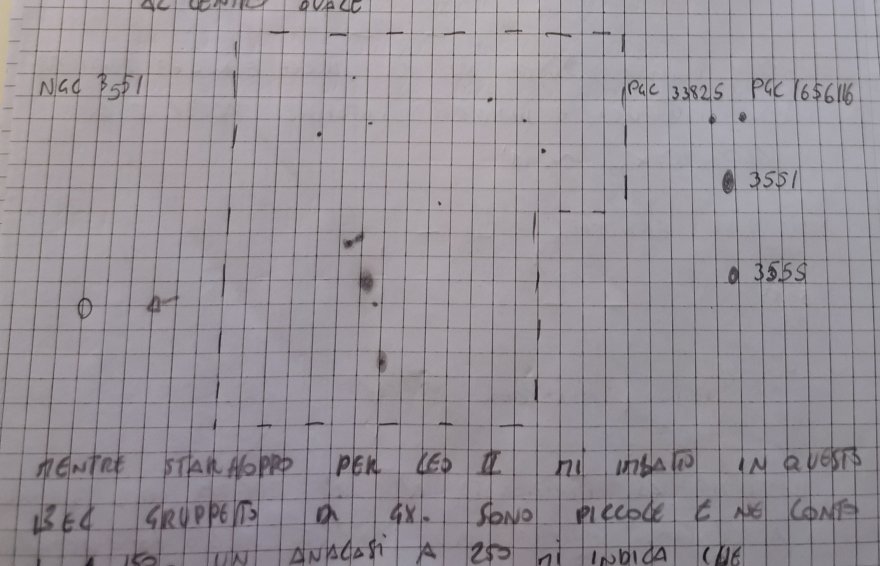 AL CENTRO OVALE
NGC 3551
PGC 33825 PGC 1656116
3551
3555
MENTRE STARHOPPO PER LEO II MI IMBATTO IN QUESTO
BEL GRUPPETTO DI GX. SONO PICCOLE E NE CONTO
150 UN ANALASI A 250 MI INDICA CHE